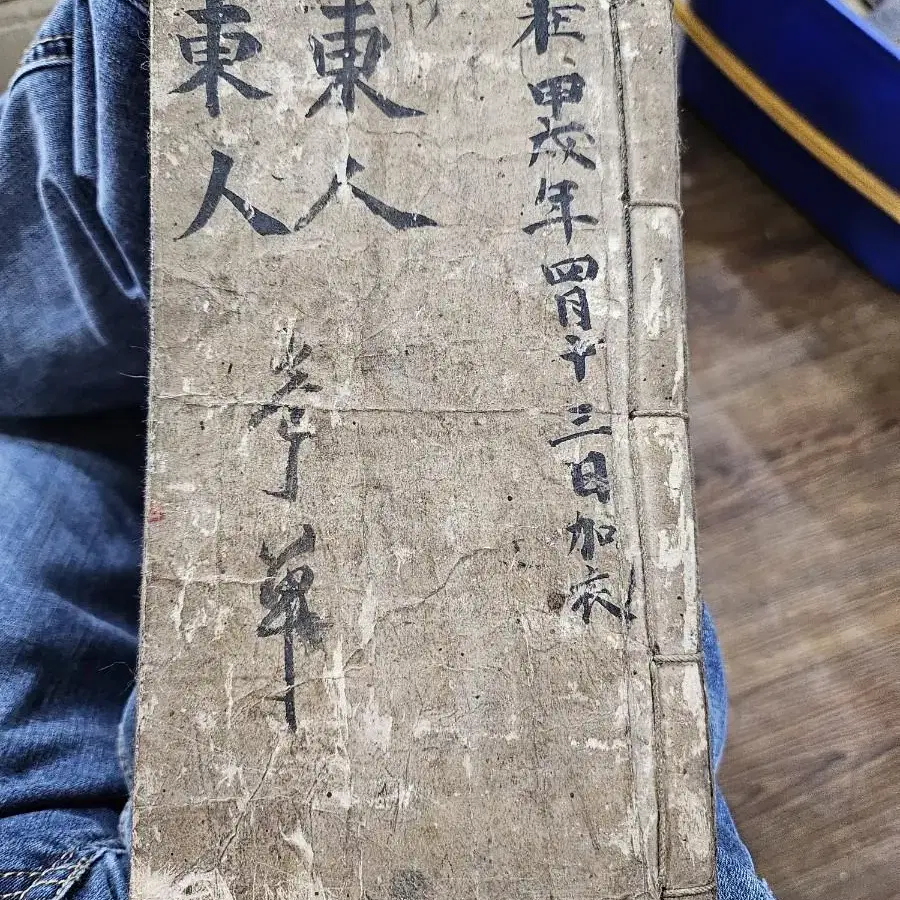 在甲戌年四月十三日加衣
東人
東人